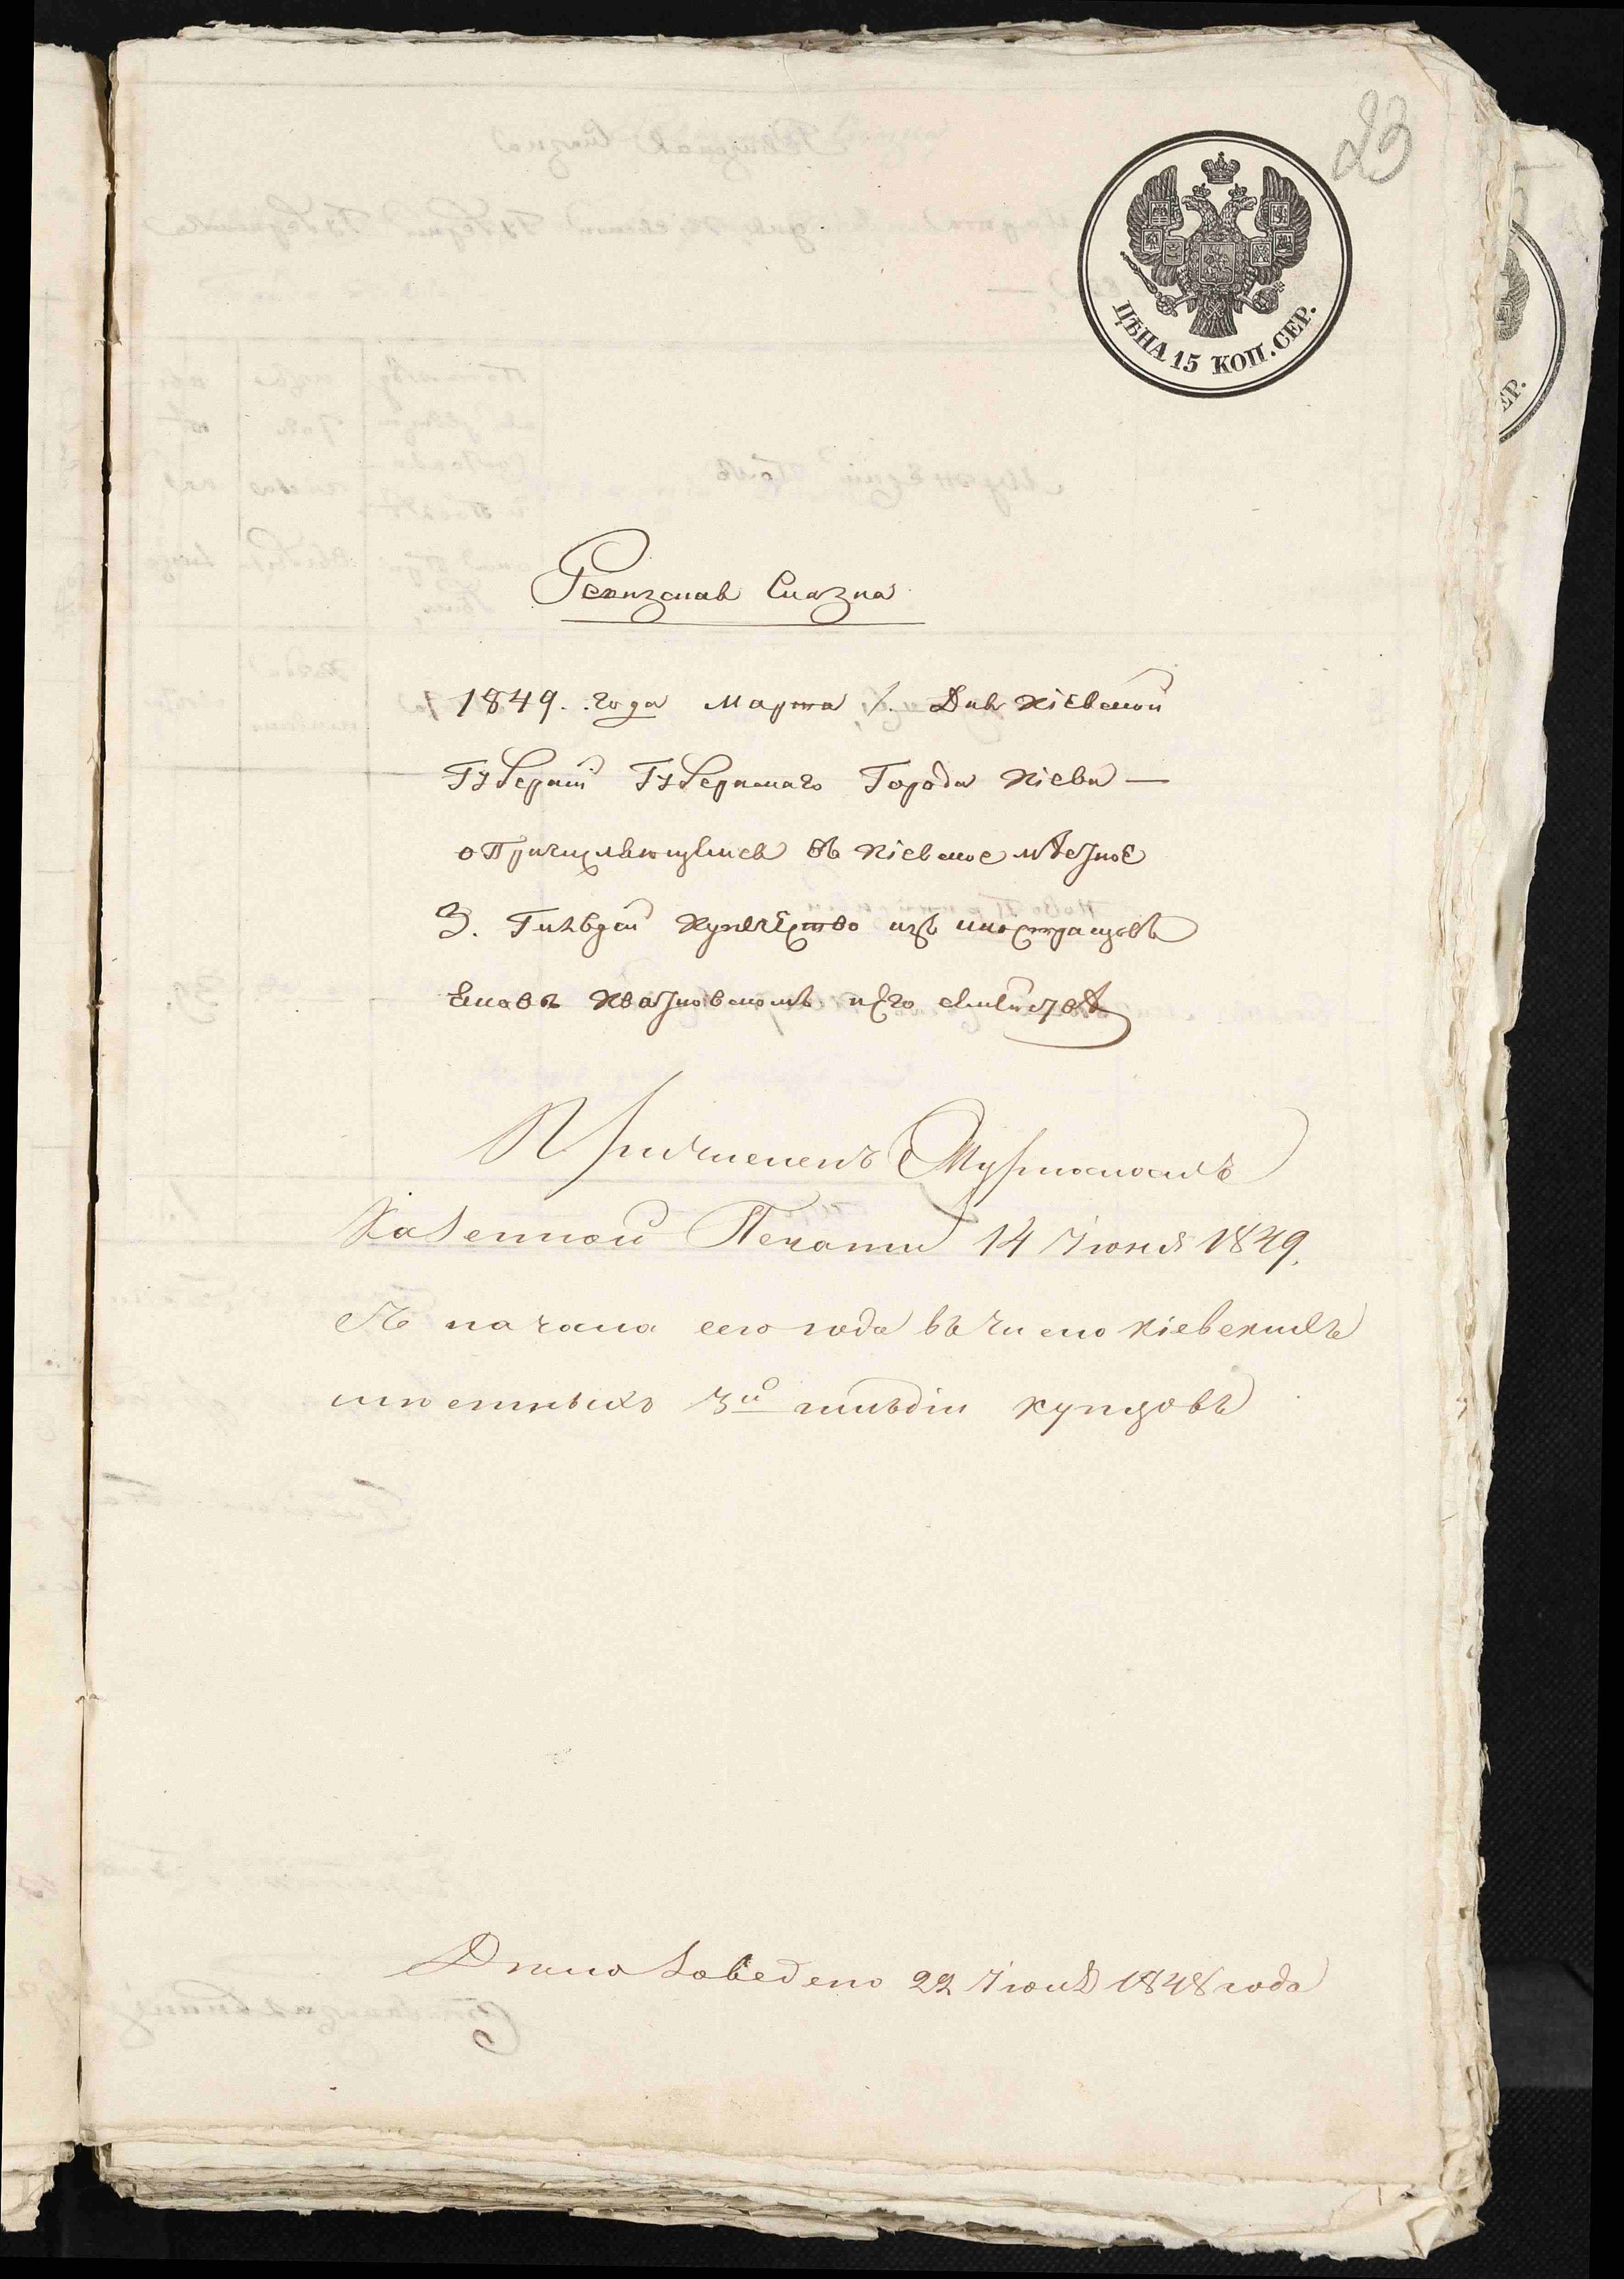 23
ЦѢНА 15 КОП. СЕР.
Ревизская Сказка
1849. года Марта /. Дня Кіевской
Губерніи Губернскаго Города Кіева —
о Причисляющемся въ Кіевское мѣстное
3. Гильдіи Купечество изъ иностранцовъ
Квятковскомъ и его семействѣ
Причисленъ
Казенной Палаты 14 Іюня 1849.
Съ начала сего года въ число Кіевскихъ
3й гильдіи купцовъ
Дѣло заведено 22 1848 года